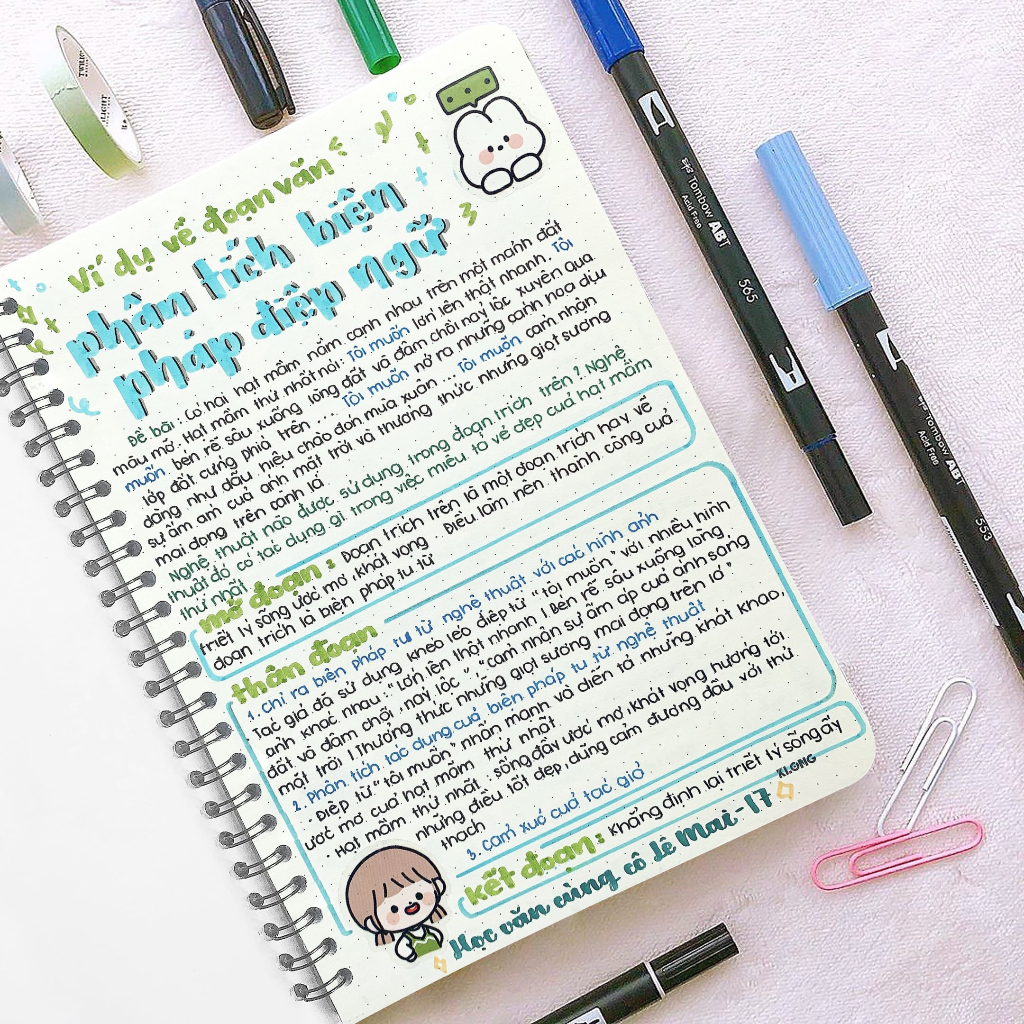 Ví dụ về đoạn văn
phân tích biện
pháp điệp ngữ
Đề bài: Có hai hạt mầm nằm cạnh nhau trên một mảnh đất
màu mỡ. Hạt mầm thứ nhất nói: Tôi muốn lớn lên thật nhanh. Tôi
muốn bén rễ sâu xuống lòng đất và đâm chồi nảy lộc xuyên qua
lớp đất cứng phía trên ... Tôi muốn nở ra những cánh hoa dịu
dàng như dấu hiệu chào đón mùa xuân ... Tôi muốn cảm nhận
sự ấm áp của ánh mặt trời và thưởng thức những giọt sương
mai đọng trên cành lá
Nghệ thuật nào được sử dụng trong đoạn trích trên? Nghệ
thuật đó có tác dụng gì trong việc miêu tả vẻ đẹp của hạt mầm
thứ nhất
mở đoạn: Đoạn trích trên là một đoạn trích hay về
triết lý sống ước mơ, khát vọng. Điều làm nên thành công của
đoạn trích là biện pháp tu từ
thân đoạn
1. Chỉ ra biện pháp tu từ nghệ thuật với các hình ảnh
Tác giả đã sử dụng khéo léo điệp từ "tôi muốn" với nhiều hình
ảnh khác nhau: "Lớn lên thật nhanh / Bén rễ sâu xuống lòng
đất và đâm chồi, nảy lộc", "cảm nhận sự ấm áp của ánh sáng
mặt trời / thưởng thức những giọt sương mai đọng trên lá"
2. Phân tích tác dụng của biện pháp tu từ nghệ thuật
. Điệp từ "tôi muốn" nhấn mạnh và diễn tả những khát khao,
ước mơ của hạt mầm thứ nhất
. Hạt mầm thứ nhất: sống đầy ước mơ, khát vọng hướng tới
những điều tốt đẹp, dũng cảm đương đầu với thử
thách
3. Cảm xúc của tác giả
kết đoạn: Khẳng định lại triết lý sống ấy
KLONG
Học văn cùng cô Lê Mai - 17
TWILIGHT
Tombow ABT
Acid Free
565
Tombow ABT
Acid Free
553